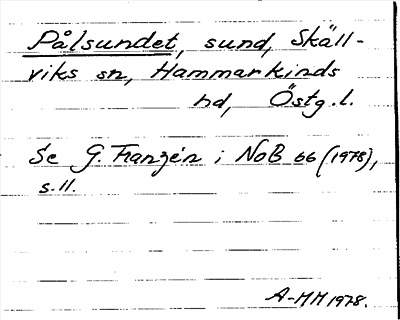 Pålsundet, sund, Skäll-
viks sn, Hammarkinds
hd, Östg.l.
Se G. Franzén i NoB 66 (1978),
s. 11.
A-MH 1978.